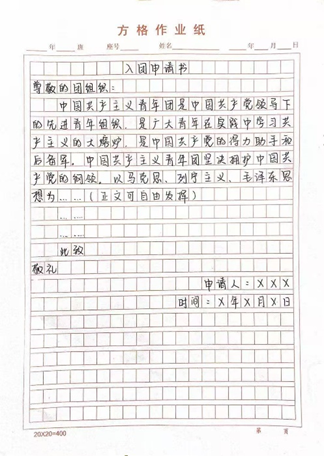 方格作业纸
年 班 座号 姓名 年 月 日
入团申请书
尊敬的团组织：
中国共产主义青年团是中国共产党领导下
的先进青年组织，是广大青年在实践中学习共
产主义的大熔炉，是中国共产党的得力助手和
后备军。中国共产主义青年团坚决拥护中国共
产党的纲领，以马克思、列宁主义、毛泽东思
想为……（正文可自由发挥）
……
……
此致
敬礼
申请人：XXX
时间：X年X月X日
20X20=400 第 页